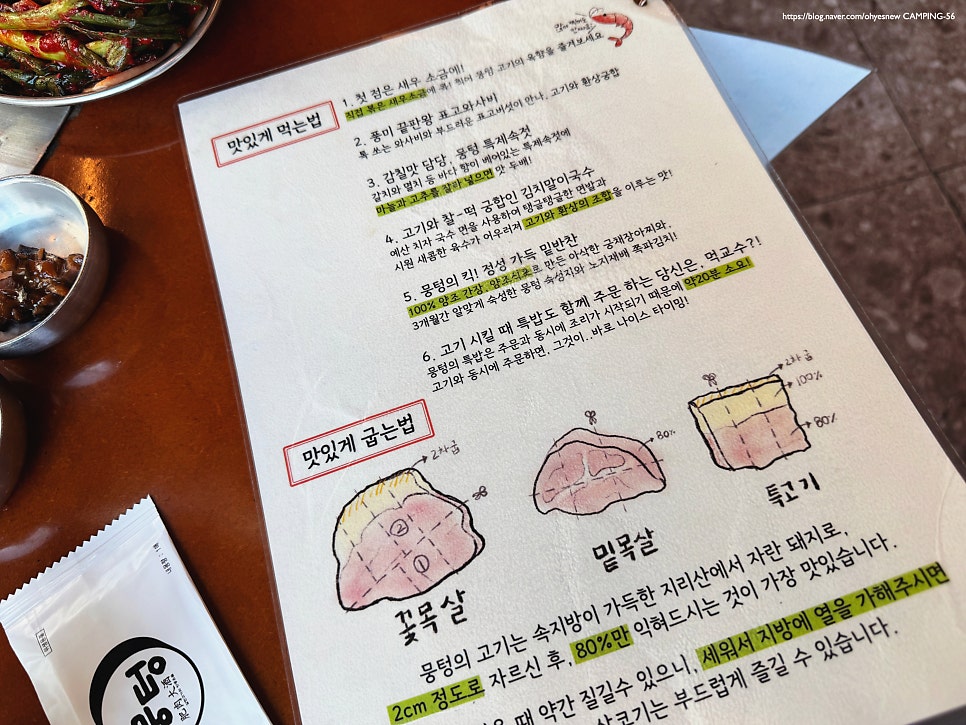 https://blog.naver.com/ohyesnew CAMPING-56
맛있게 먹는법
1. 첫 점은 새우 소금에!
직접 볶은 새우소금에 콕! 찍어 뭉텅 고기의 육향을 즐겨보세요
2. 풍미 끝판왕 표고와사비
톡 쏘는 와사비와 부드러운 표고버섯이 만나, 고기와 환상궁합
3. 감칠맛 담당, 뭉텅 특제속젓
갈치와 멸치 등 바다 향이 베어있는 특제속젓에
마늘과 고추를 잘라 넣으면 맛 두배!
4. 고기와 찰-떡 궁합인 김치말이국수
예산 치자 국수 면을 사용하여 탱글탱글한 면발과
시원 새콤한 육수가 어우러져 고기와 환상의 조합을 이루는 맛!
5. 뭉텅의 킥! 정성 가득 밑반찬
100% 양조 간장, 양조식초로 만든 아삭한 궁채장아찌와,
3개월간 알맞게 숙성한 뭉텅 숙성지와 노지재배 쪽파김치!
6. 고기 시킬 때 특밥도 함께 주문 하는 당신은, 먹교수?!
뭉텅의 특밥은 주문과 동시에 조리가 시작되기 때문에 약20분 소요!
고기와 동시에 주문하면, 그것이..바로 나이스 타이밍!
맛있게 굽는법
2차굽
②
①
꽃목살
80%
밑목살
2차굽
100%
80%
특고기
뭉텅의 고기는 속지방이 가득한 지리산에서 자란 돼지로,
2cm 정도로 자르신 후, 80%만 익혀드시는 것이 가장 맛있습니다.
때 약간 질길수 있으니, 세워서 지방에 열을 가해주시면
고기는 부드럽게 즐길 수 있습니다.
뭉텅